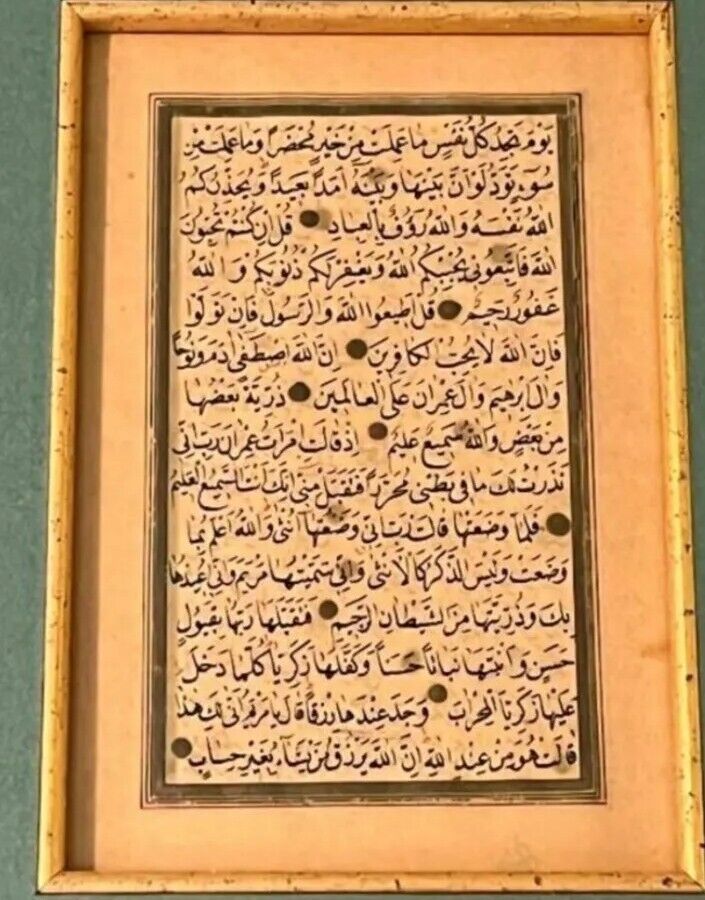 يَوْمَ تَجِدُ كُلُّ نَفْسٍ مَا عَمِلَتْ مِنْ خَيْرٍ مُحْضَرًا وَمَا عَمِلَتْ مِنْ
سُوءٍ تَوَدُّ لَوْ اَنَّ بَيْنَهَا وَبَيْنَهُ اَمَدًا بَعِيدًا وَيُحَذِّرُكُمُ
اللهُ نَفْسَهُ وَاللهُ رَؤُفٌ بِالْعِبَادِ قُلْ اِنْ كُنْتُمْ تُحِبُّونَ
اللهَ فَاتَّبِعُونِي يُحْبِبْكُمُ اللهُ وَيَغْفِرْ لَكُمْ ذُنُوبَكُمْ وَاللهُ
غَفُورٌ رَحِيمٌ قُلْ اَطِيعُوا اللهَ وَالرَّسُولَ فَاِنْ تَوَلَّوْا
فَاِنَّ اللهَ لَا يُحِبُّ الْكَافِرِينَ اِنَّ اللهَ اصْطَفٰى اٰدَمَ وَنُوحًا
وَاٰلَ اِبْرٰهِيمَ وَاٰلَ عِمْرَانَ عَلَى الْعَالَمِينَ ذُرِّيَّةً بَعْضُهَا
مِنْ بَعْضٍ وَاللهُ سَمِيعٌ عَلِيمٌ اِذْ قَالَتِ امْرَاَتُ عِمْرَانَ رَبِّ اِنِّي
نَذَرْتُ لَكَ مَا فِي بَطْنِي مُحَرَّرًا فَتَقَبَّلْ مِنِّي اِنَّكَ اَنْتَ السَّمِيعُ الْعَلِيمُ
فَلَمَّا وَضَعَتْهَا قَالَتْ رَبِّ اِنِّي وَضَعْتُهَا اُنْثٰى وَاللهُ اَعْلَمُ بِمَا
وَضَعَتْ وَلَيْسَ الذَّكَرُ كَالْاُنْثٰى وَاِنِّي سَمَّيْتُهَا مَرْيَمَ وَاِنِّي اُعِيذُهَا
بِكَ وَذُرِّيَّتَهَا مِنَ الشَّيْطَانِ الرَّجِيمِ فَتَقَبَّلَهَا رَبُّهَا بِقَبُولٍ
حَسَنٍ وَاَنْبَتَهَا نَبَاتًا حَسَنًا وَكَفَّلَهَا زَكَرِيَّا كُلَّمَا دَخَلَ
عَلَيْهَا زَكَرِيَّا الْمِحْرَابَ وَجَدَ عِنْدَهَا رِزْقًا قَالَ يَا مَرْيَمُ اَنّٰى لَكِ هٰذَا
قَالَتْ هُوَ مِنْ عِنْدِ اللهِ اِنَّ اللهَ يَرْزُقُ مَنْ يَشَاءُ بِغَيْرِ حِسَابٍ